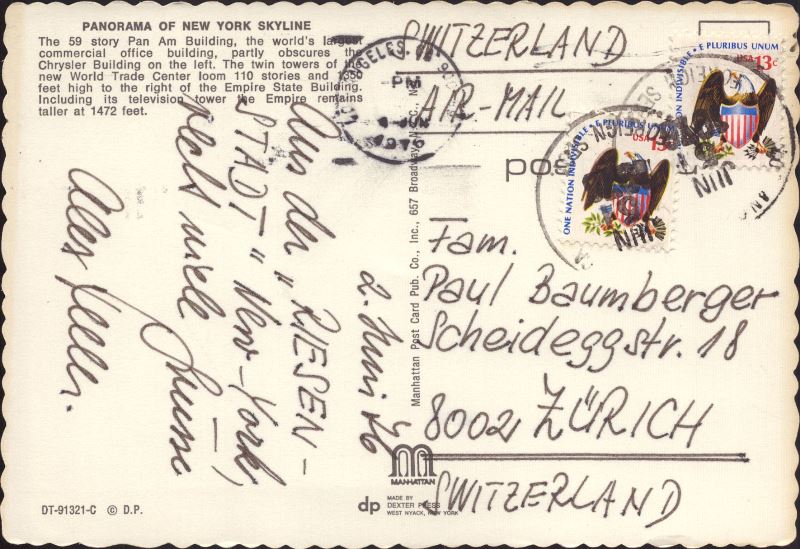 PANORAMA OF NEW YORK SKYLINE
The 59 story Pan Am Building, the world's largest
commercial office building, partly obscures the
Chrysler Building on the left. The twin towers of the
new World Trade Center loom 110 stories and 1350
feet high to the right of the Empire State Building.
Including its television tower the Empire remains
taller at 1472 feet.
2. Juni 76
Aus der „RIESEN-
STADT" New-York,
recht viele Grüsse
Alex
SWITZERLAND
AIR-MAIL
GELES, CA
PM
1976
pos
E PLURIBUS UNUM
USA 13c
ONE NATION INDIVISIBLE
E PLURIBUS UNUM
USA 13c
ONE NATION INDIVISIBLE
JUN
JUN
Fam.
Paul Baumberger
Scheideggstr. 18
8002 ZÜRICH
SWITZERLAND
Manhattan Post Card Pub. Co., Inc., 657 Broadway, N.Y.C., N.
MANHATTAN
dp
MADE BY
DEXTER PRESS
WEST NYACK, NEW YORK
DT-91321-C © D.P.